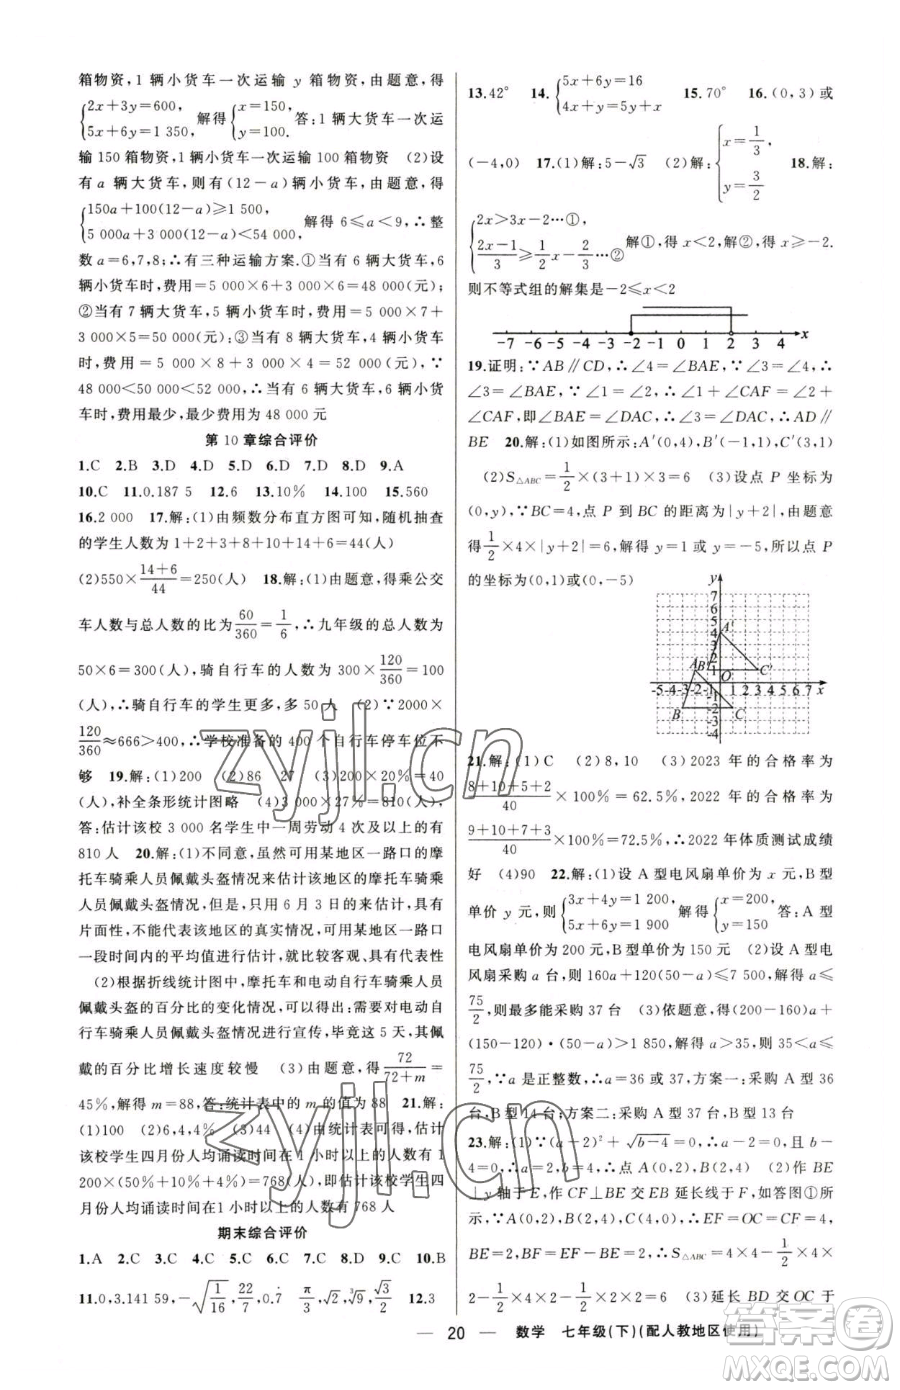 箱物资,1 辆小货车一次运输 y 箱物资,由题意,得
{2x+3y=600, 5x+6y=1 350, 解得{x=150, y=100. 答:1 辆大货车一次运
输 150 箱物资,1 辆小货车一次运输 100 箱物资 (2)设
有 a 辆大货车,则有(12-a)辆小货车,由题意,得
{150a+100(12-a)≥1 500, 5 000a+3 000(12-a)<54 000, 解得 6≤a<9,∴整
数 a=6,7,8;∴有三种运输方案.①当有 6 辆大货车,6
辆小货车时,费用=5 000×6+3 000×6=48 000(元);
②当有 7 辆大货车,5 辆小货车时,费用=5 000×7+
3 000×5=50 000(元);③当有 8 辆大货车,4 辆小货
车时,费用=5 000×8+3 000×4=52 000(元),∵
48 000<50 000<52 000,∴当有 6 辆大货车,6 辆小货
车时,费用最少,最少费用为 48 000 元
第 10 章综合评价
1.C 2.B 3.D 4.D 5.D 6.D 7.C 8.D 9.A
10.C 11.0.187 5 12.6 13.10% 14.100 15.560
16.2 000 17.解:(1)由频数分布直方图可知,随机抽查
的学生人数为 1+2+3+8+10+14+6=44(人)
(2)550×(14+6)/44=250(人) 18.解:(1)由题意,得乘公交
车人数与总人数的比为 60/360=1/6,∴九年级的总人数为
50×6=300(人),骑自行车的人数为 300×120/360=100
(人),∴骑自行车的学生更多,多 50 人 (2)∵2000×
120/360≈666>400,∴学校准备的 400 个自行车停车位不
够 19.解:(1)200 (2)86 27 (3)200×20%=40
(人),补全条形统计图略 (4)3 000×27%=810(人),
答:估计该校 3 000 名学生中一周劳动 4 次及以上的有
810 人 20.解:(1)不同意,虽然可用某地区一路口的摩
托车骑乘人员佩戴头盔情况来估计该地区的摩托车骑乘
人员佩戴头盔情况,但是,只用 6 月 3 日的来估计,具有
片面性,不能代表该地区的真实情况,可用某地区一路口
一段时间内的平均值进行估计,就比较客观、具有代表性
(2)根据折线统计图中,摩托车和电动自行车骑乘人员
佩戴头盔的百分比的变化情况,可以得出:需要对电动自
行车骑乘人员佩戴头盔情况进行宣传,毕竟这 5 天,其佩
戴的百分比增长速度较慢 (3)由题意,得 72/(72+m)=
45%,解得 m=88,答:统计表中的 m 的值为 88 21.解:
(1)100 (2)6,4,4% (3)9 (4)由题意,得估计
该校学生四月份人均诵读时间在 1 小时以上的人数有 1
200×(50%+10%+4%)=768(人),即估计该校学生四
月份人均诵读时间在 1 小时以上的人数有 768 人
期末综合评价
1.A 2.C 3.C 4.C 5.C 6.C 7.B 8.D 9.C 10.B
11.0,3.141 59,-√(1/16),22/7,0.7̇ π/3,√2,∛9,√3/2 12.3
13.42° 14.{5x+6y=16 4x+y=5y+x 15.70° 16.(0,3)或
(-4,0) 17.(1)解:5-√3 (2)解:{x=1/3, y=3/2 18.解:
{2x>3x-2…①, (2x-1)/3≥1/2x-2/3…② 解①,得 x<2,解②,得 x≥-2.
则不等式组的解集是-2≤x<2
-7 -6 -5 -4 -3 -2 -1 0 1 2 3 4 x
19.证明:∵AB∥CD,∴∠4=∠BAE,∵∠3=∠4,∴
∠3=∠BAE,∵∠1=∠2,∴∠1+∠CAF=∠2+
∠CAF,即∠BAE=∠DAC,∴∠3=∠DAC,∴AD∥
BE 20.解:(1)如图所示:A′(0,4),B′(-1,1),C′(3,1)
(2)S△ABC=1/2×(3+1)×3=6 (3)设点 P 坐标为
(0,y),∵BC=4,点 P 到 BC 的距离为|y+2|,由题意
得 1/2×4×|y+2|=6,解得 y=1 或 y=-5,所以点 P
的坐标为(0,1)或(0,-5)
y
7
6
5
4 A′
3
2
A B′ 1 C′
-5-4-3-2-1 O 1 2 3 4 5 6 7 x
B -2 C
-3
-4
21.解:(1)C (2)8,10 (3)2023 年的合格率为
(8+10+5+2)/40×100%=62.5%,2022 年的合格率为
(9+10+7+3)/40×100%=72.5%,∴2022 年体质测试成绩
好 (4)90 22.解:(1)设 A 型电风扇单价为 x 元,B 型
单价 y 元,则{3x+4y=1 200 5x+6y=1 900 解得{x=200, y=150 答:A 型
电风扇单价为 200 元,B 型单价为 150 元 (2)设 A 型电
风扇采购 a 台,则 160a+120(50-a)≤7 500,解得 a≤
75/2,则最多能采购 37 台 (3)依题意,得(200-160)a+
(150-120)·(50-a)>1 850,解得 a>35,∵35<a≤
75/2,∵a 是正整数,∴a=36 或 37,方案一:采购 A 型 36
台,B 型 14 台;方案二:采购 A 型 37 台,B 型 13 台
23.解:(1)∵(a+2)²+√(b-4)=0,∴a+2=0,b-
4=0,∴a=-2,b=4 (2)作 BE
⊥y 轴于 E,作 CF⊥BE 交 EB 延长线于 F,如答图①所
示:∵A(0,2),B(-2,0),C(2,4),∴EF=OC=OE=4,
BE=2=BF=2,∴AE=2,∴S△ABC=4×4-1/2×4×
2-1/2×4×2-1/2×2×2=6 (3)延长 BD 交 OC 于
— 20 — 数学 七年级(下)(配人教地区使用)
zyjl.cn
zyjl.cn
答案圈
MXQE.COM